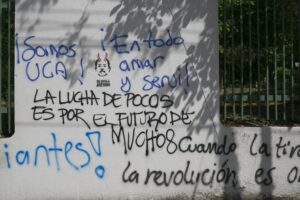 ¡Somos UCA!
¡En todo amar y servir!
LA LUCHA DE POCOS
ES POR EL FUTURO DE
MUCHOS
iantes!
Cuando la tira
la revolución es